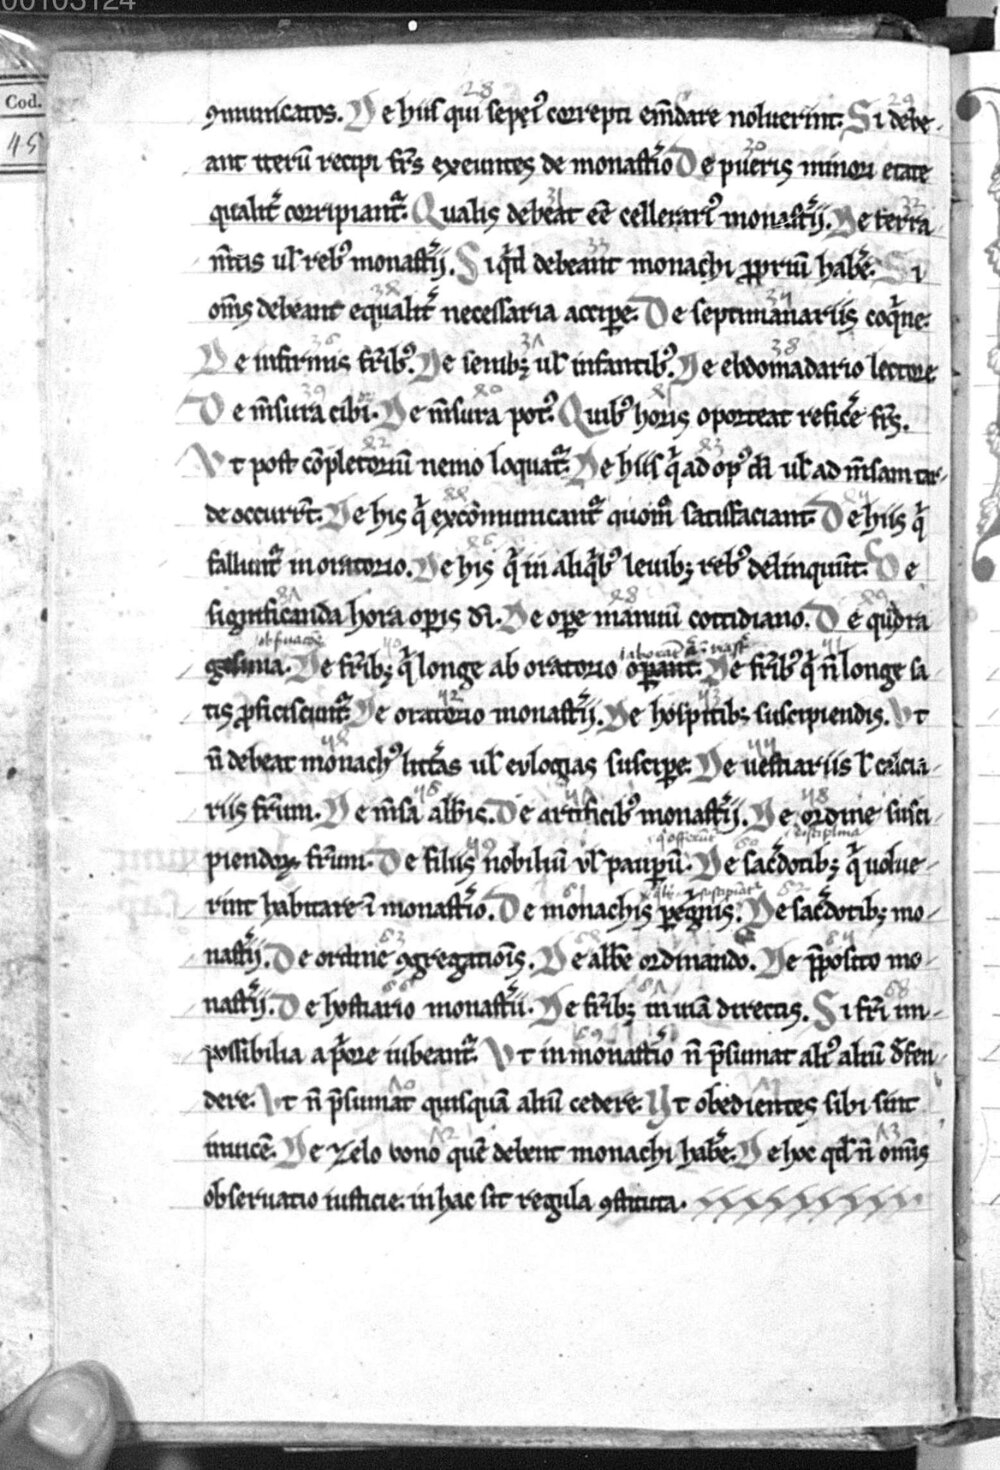 00103124
Cod.
45
ꝯmunicatos. De hiis qui sepeꝰ correpti em̄dare noluerint. Si debe-
ant iterū recipi fr̄s exeuntes de monast̄io De pueris minori etate
qualit̄ corripiant᷑. Qualis debeat eē cellerariꝰ monast̄ij. De ferra
m̄tis ul rebꝰ monast̄ij. Si qͥd debeant monachi ꝓpriū habe᷑. Si
om̄s debeant equalit̄ necessaria accipe᷑. De septimanariis coqͥne.
De infirmis fr̄ibꝰ. De senibꝫ ul infantibꝰ. De ebdomadario lectore
De m̄sura cibi. De m̄sura potꝰ. Quibꝰ horis oporteat refice᷑ fr̄s.
Vt post cōpletoriū nemo loquat᷑. De hiis qͥ ad opꝰ di ul ad m̄sam tar-
de occurrt̄. De his qͥ excōmunicant᷑ quom̄o satisfaciant. De hiis qͥ
fallunt᷑ in oratorio. De his qͥ in aliqͥbꝰ leuibꝫ rebꝰ delinquūt. De
significanda hora opis di. De ope manuū cottidiano. De qudra
gesima. De fr̄ibꝫ qͥ longe ab oratorio opant. De fr̄ibꝰ qͥ n̄ longe sa
tis ꝓficiscunt᷑. De oratorio monast̄ij. De hospitibꝫ suscipiendis. Vt
n̄ debeat monachꝰ litt̄as ul eulogias suscipe᷑. De uestiariis l calcia-
riis fr̄um. De m̄sa abb̄is. De artificibꝰ monast̄ij. De ordine susci
piendoꝝ fr̄um. De filiis nobiliū ul paupū. De sac̄dotibꝫ qͥ uolue-
rint habitare ī monast̄io. De monachis pegͥnis. De sac̄dotibꝫ mo-
nast̄ij. De ordine ꝯgregatiōis. De abb̄e ordinando. De p̄posito mo-
nast̄ij. De hostiario monast̄ii. De fr̄ibꝫ in uiā directis. Si fr̄i im-
possibilia a pͥore iubeant᷑. Vt in monast̄io n̄ p̄sumat aliꝰ aliū defen
dere. Vt n̄ p̄sumat quisquā aliū cedere. Vt obedientes sibi sint
inuicē. De zelo bono quē debent monachi habe᷑. De hoc qd n̄ omīs
obseruatio iusticie. in hac sit regula ꝯstituta.